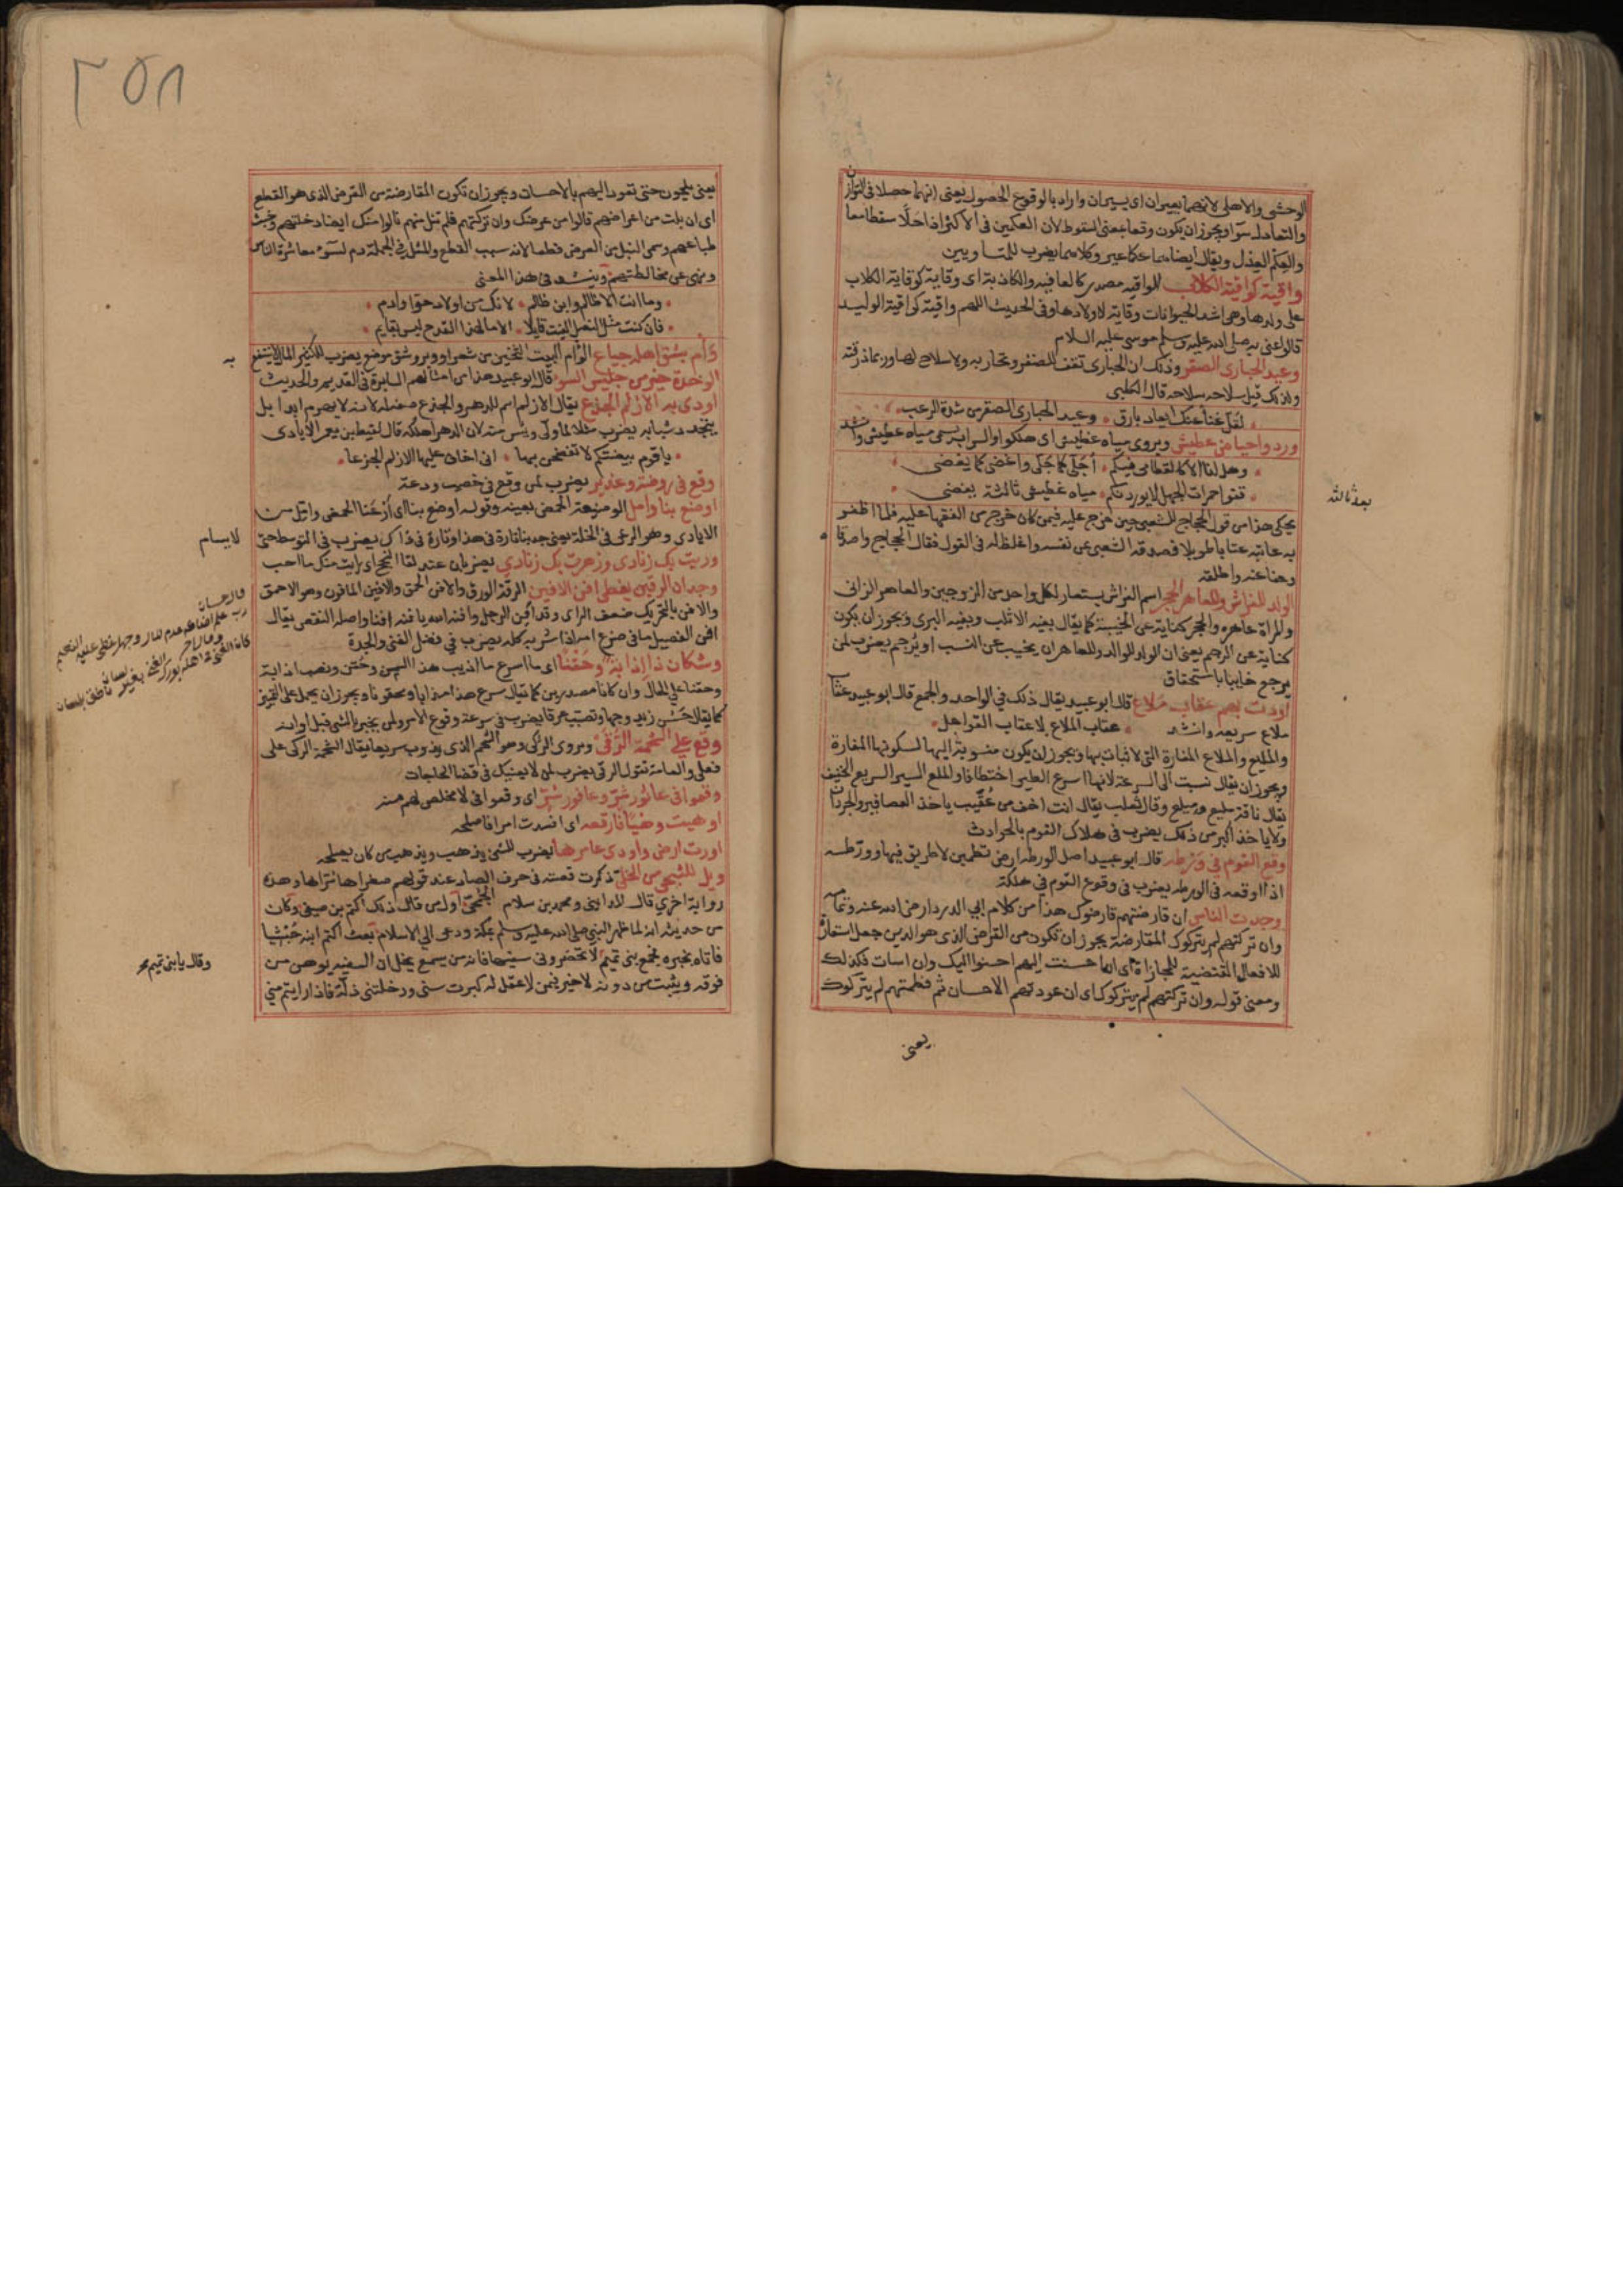 الوحشي والاهلي لانهما بعيران اي يسيران واراد بالوقوع الحصول يعني انهما حصلا في التوازن
والتعادل سوا ويجوز ان يكون وقعا بمعنى السقوط لان العكمين في الاكثر اذا حلا سقطا معا
والعكم العدل ويقال ايضا هما عكما عير وكلاهما يضرب للمتساويين
واقية كواقية الكلاب الواقيه مصدر كالعافيه والكاذبة اي وقاية كوقاية الكلاب
على ولدها وهي اشد الحيوانات وقاية لاولادها وفي الحديث اللهم واقية كواقية الوليد
قالوا عني به صلى الله عليه وسلم موسى عليه السلام
وعيد الحبارى الصقر وذلك ان الحبارى تقف للصقر وتحاربه ولا سلاح لها وربما ذرقته
ولذلك قيل سلاحه سلاحه قال الكلبي
وعيد الحبارى الصقر من شدة الرعب
وردوا حياض عطيش ويروى مياه عطيش اي هلكوا والسراب يسمى مياه عطيش وانشد
وهل انا الا كالقطامي فيكم اجلي كما جلى واغضي كما يغضي
قفوا حمرات الجهل لا يوردنكم مياه عطيش ثالثة بغضي
بعد ثالثه
يحكى هذا من قول الحجاج للشعبي حين خرج عليه فيمن كان خرج من الفقها عليه فلما ظفر
به عاتبه عتابا طويلا فصدقه الشعبي عن نفسه واغلظ له في القول فقال الحجاج واصدقا
وعفا عنه واطلقه
الولد للفراش وللعاهر الحجر اسم الفراش يستعار لكل واحد من الزوجين والعاهر الزاني
والمراة عاهره والحجر كناية عن الخيبة كما يقال بفيه الاثلب وبفيه البرى ويجوز ان يكون
كناية عن الرجم يعني ان الولد للوالد وللعاهر ان يخيب عن النسب او يرجم يضرب لمن
يرجع خايبا باستحقاق
اودت بهم عقاب ملاع قال ابو عبيد يقال ذلك في الواحد والجمع قال ابو عبيد عقاب
ملاع سريعه وانشد عقاب الملاع لا عقاب القواعل
والمليع والملاع المفازة التي لا نبات بها ويجوز ان يكون منسوبة اليها لسكونها المفازة
ويجوز ان يقال نسبت الى السرعة لانها اسرع الطير اختطافا والملع السير السريع الخفيف
يقال ناقة مليع وميلع وقال ثعلب يقال انت اخف من عقيب ياخذ العصافير والجرذان
ولا ياخذ اكبر من ذلك يضرب في هلاك القوم بالحوادث
وقع القوم في ورطه قال ابو عبيد اصل الورطه ارض تطمين لا طريق فيها وورطه
اذا اوقعه في الورطه يضرب في وقوع القوم في هلكة
وجدت الناس ان قارضتهم قارضوك هذا من كلام ابي الدردا رضي الله عنه وتمامه
وان تركتهم لم يتركوك المقارضة يجوز ان تكون من القرض الذي هو الدين جعل استعارة
للافعال المقتضية للمجازاة اي ان احسنت اليهم احسنوا اليك وان اسات فكذلك
ومعنى قوله وان تركتهم لم يتركوك اي ان عودتهم الاحسان ثم فطمتهم لم يتركوك
يعني
٢٥٨
يعني يلجون حتى تعود اليهم بالاحسان ويجوز ان تكون المقارضة من القرض الذي هو القطع
اي ان نلت من اعراضهم نالوا من عرضك وان تركتهم فلم تنل منهم نالوا منك ايضا دخلتهم وخبث
طباعهم وسمى النيل من العرض قطعا لانه سبب القطع والمثل في الجملة ذم لسوء معاشرة الناس
ونهي عن مخالطتهم وينشد في هذا المعنى
وما انت الا ظالم وابن ظالم لانك من اولاد حوا وادم
فان كنت مثل النصل الفيت قايلا الا ما لهذا القدح ليس بقايم
وأم بشق اهله جياع الوأم البيت الثخين من شعر او وبر وشق موضع يضرب للكثير المال لا ينتفع
به
الوحدة خير من جليس السوء قال ابو عبيد هذا من امثالهم السايرة في القديم والحديث
اودى به الازلم الجذع يقال الازلم اسم للدهر والجذع صفة له لانه لا يهرم ابدا بل
يتجدد شبابه يضرب مثلا لما ولى ويئس منه لان الدهر اهلكه قال لقيط بن يعمر الايادي
يا قوم بيضتكم لا تفضحن بها اني اخاف عليها الازلم الجذعا
وقع في روضة وغدير يضرب لمن وقع في خصب ودعة
اوضع بنا وامل الوضيعة الحمض بعينه وقوله اوضع بنا اي ارعنا الحمض وامل من
الايادي وهو الرعي في الخلة يعني خذ بنا تارة في هذا وتارة في ذاك يضرب في المتوسط حتى
لا يسام
وريت بك زنادي وزهرت بك زنادي يضربان عند لقا النجح اي رايت منك ما احب
وجدان الرقين يغطي افن الافين الرقة الورق والافن الحمق والافين المافون وهو الاحمق
والافن بالتحريك ضعف الراي وقد افن الرجل وافنه الله يافنه افنا واصله النقص يقال
افن الفصيل ما في ضرع امه اذا شربه كله يضرب في فضل الغنى والجدة
وشكان ذا اذابة وحقنا اي ما اسرع ما اذيب هذا السمن وحقن ونصب اذابة
وحقنا على الحال وان كانا مصدرين كما يقال سرع هذا مذابا ومحقونا ويجوز ان يحمل على التمييز
كما يقال حسن زيد وجها وتصبب عرقا يضرب في سرعة وقوع الامر ولمن يخبر بالشي قبل اوانه
وقع على الشحمة الرقى ويروى الركى وهو الشحم الذي يذوب سريعا يقال الشحمة الركى على
فعلى والعامة تقول الرقى يضرب لمن لا يعينك في قضا الحاجات
وقعوا في عاثور شر وعافور شر اي وقعوا في لا مخلص لهم منه
اوهيت وهيا فارقعه اي افسدت امرا فاصلحه
اورت ارض واودى عامرها يضرب للشي يذهب ويذهب من كان يصلحه
ويل للشجي من الخلي ذكرت قصته في حرف الصاد عند قولهم صغراها شراها وهذه
رواية اخرى قال المدايني ومحمد بن سلام الجمحي اول من قال ذلك اكثم بن صيفي وكان
من حديثه انه لما ظهر النبي صلى الله عليه وسلم بمكة ودعى الي الاسلام بعث اكثم ابنه حبشيا
فاتاه بخبره فجمع بني تميم لا تحضروني سفيها فانه من يسمع يخل ان السفيه يوهن من
وقال يا بني تميم
فوقه ويثبت من دونه لا خير فيمن لا عقل له كبرت سني ودخلتني ذلة فاذا رايتم مني